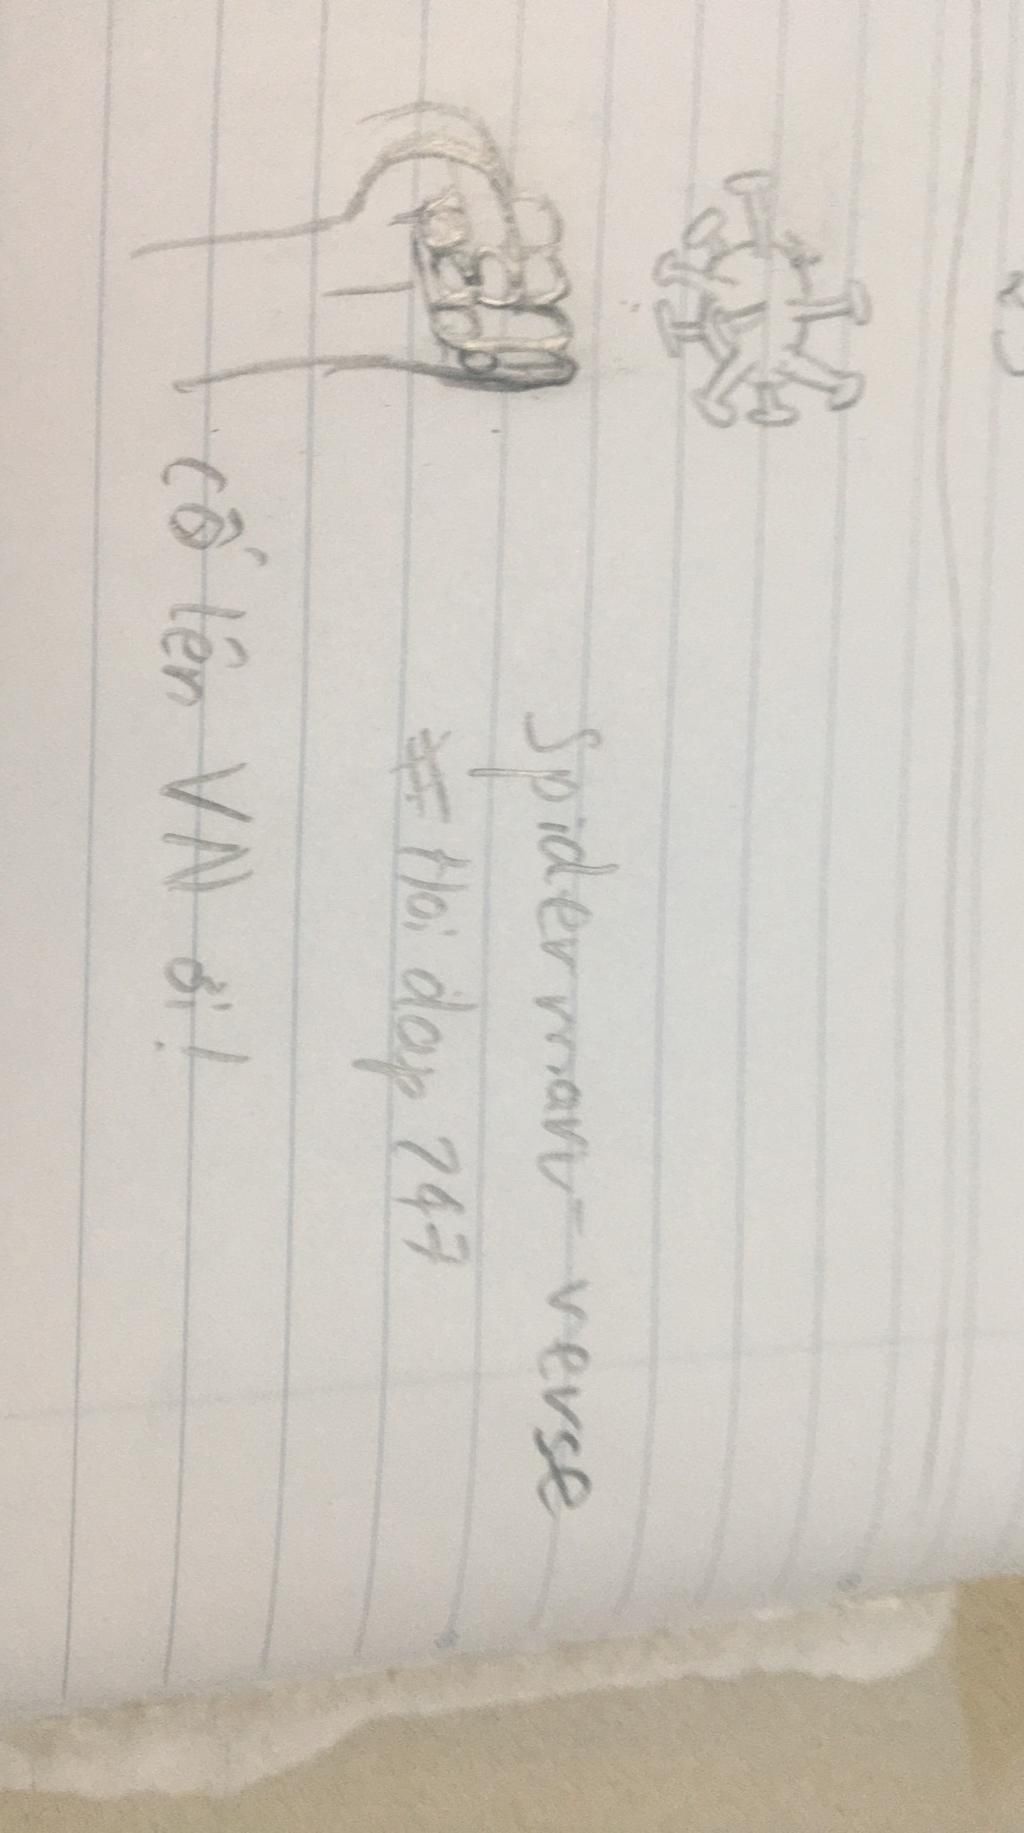 Spiderman-verse
# Hoi dap 247
Cố lên VN ơi!